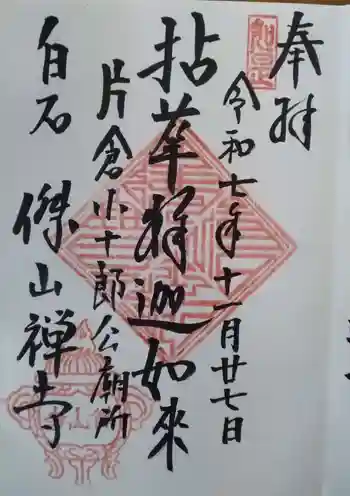 奉拝
令和七年十一月廿七日
拈華釋迦如來
片倉小十郎公廟所
白石 傑山禅寺